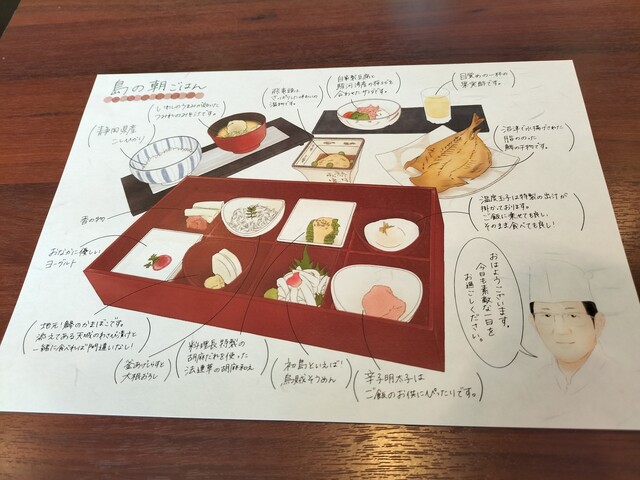 島の朝ごはん
いわしのうまみが効いた
つみれのみそ汁です。
静岡県産
こしひかり
香の物
さっぱりとした味わいの
温物です。
自家製豆腐と
駿河湾産の桜えびを
合わせたサラダです。
目覚めの一杯の
果実酢です。
沼津で水揚げされた
脂ののった
鯵の干物です。
温度玉子は特製の出汁が
掛かっております。
ご飯に乗せても良し、
そのまま食べても良し!
おはようございます。
今日も素敵な一日を
お過ごしください。
おなかに優しい
ヨーグルト
地元!鯵のかまぼこです。
添えてある天城のわさび漬けと
一緒に食べれば間違いなし!
釜あげしらすと
大根おろし
料理長特製の
胡麻だれを使った
法連草の胡麻和え
初島といえば!
烏賊そうめん
辛子明太子は
ご飯のお供にぴったりです。